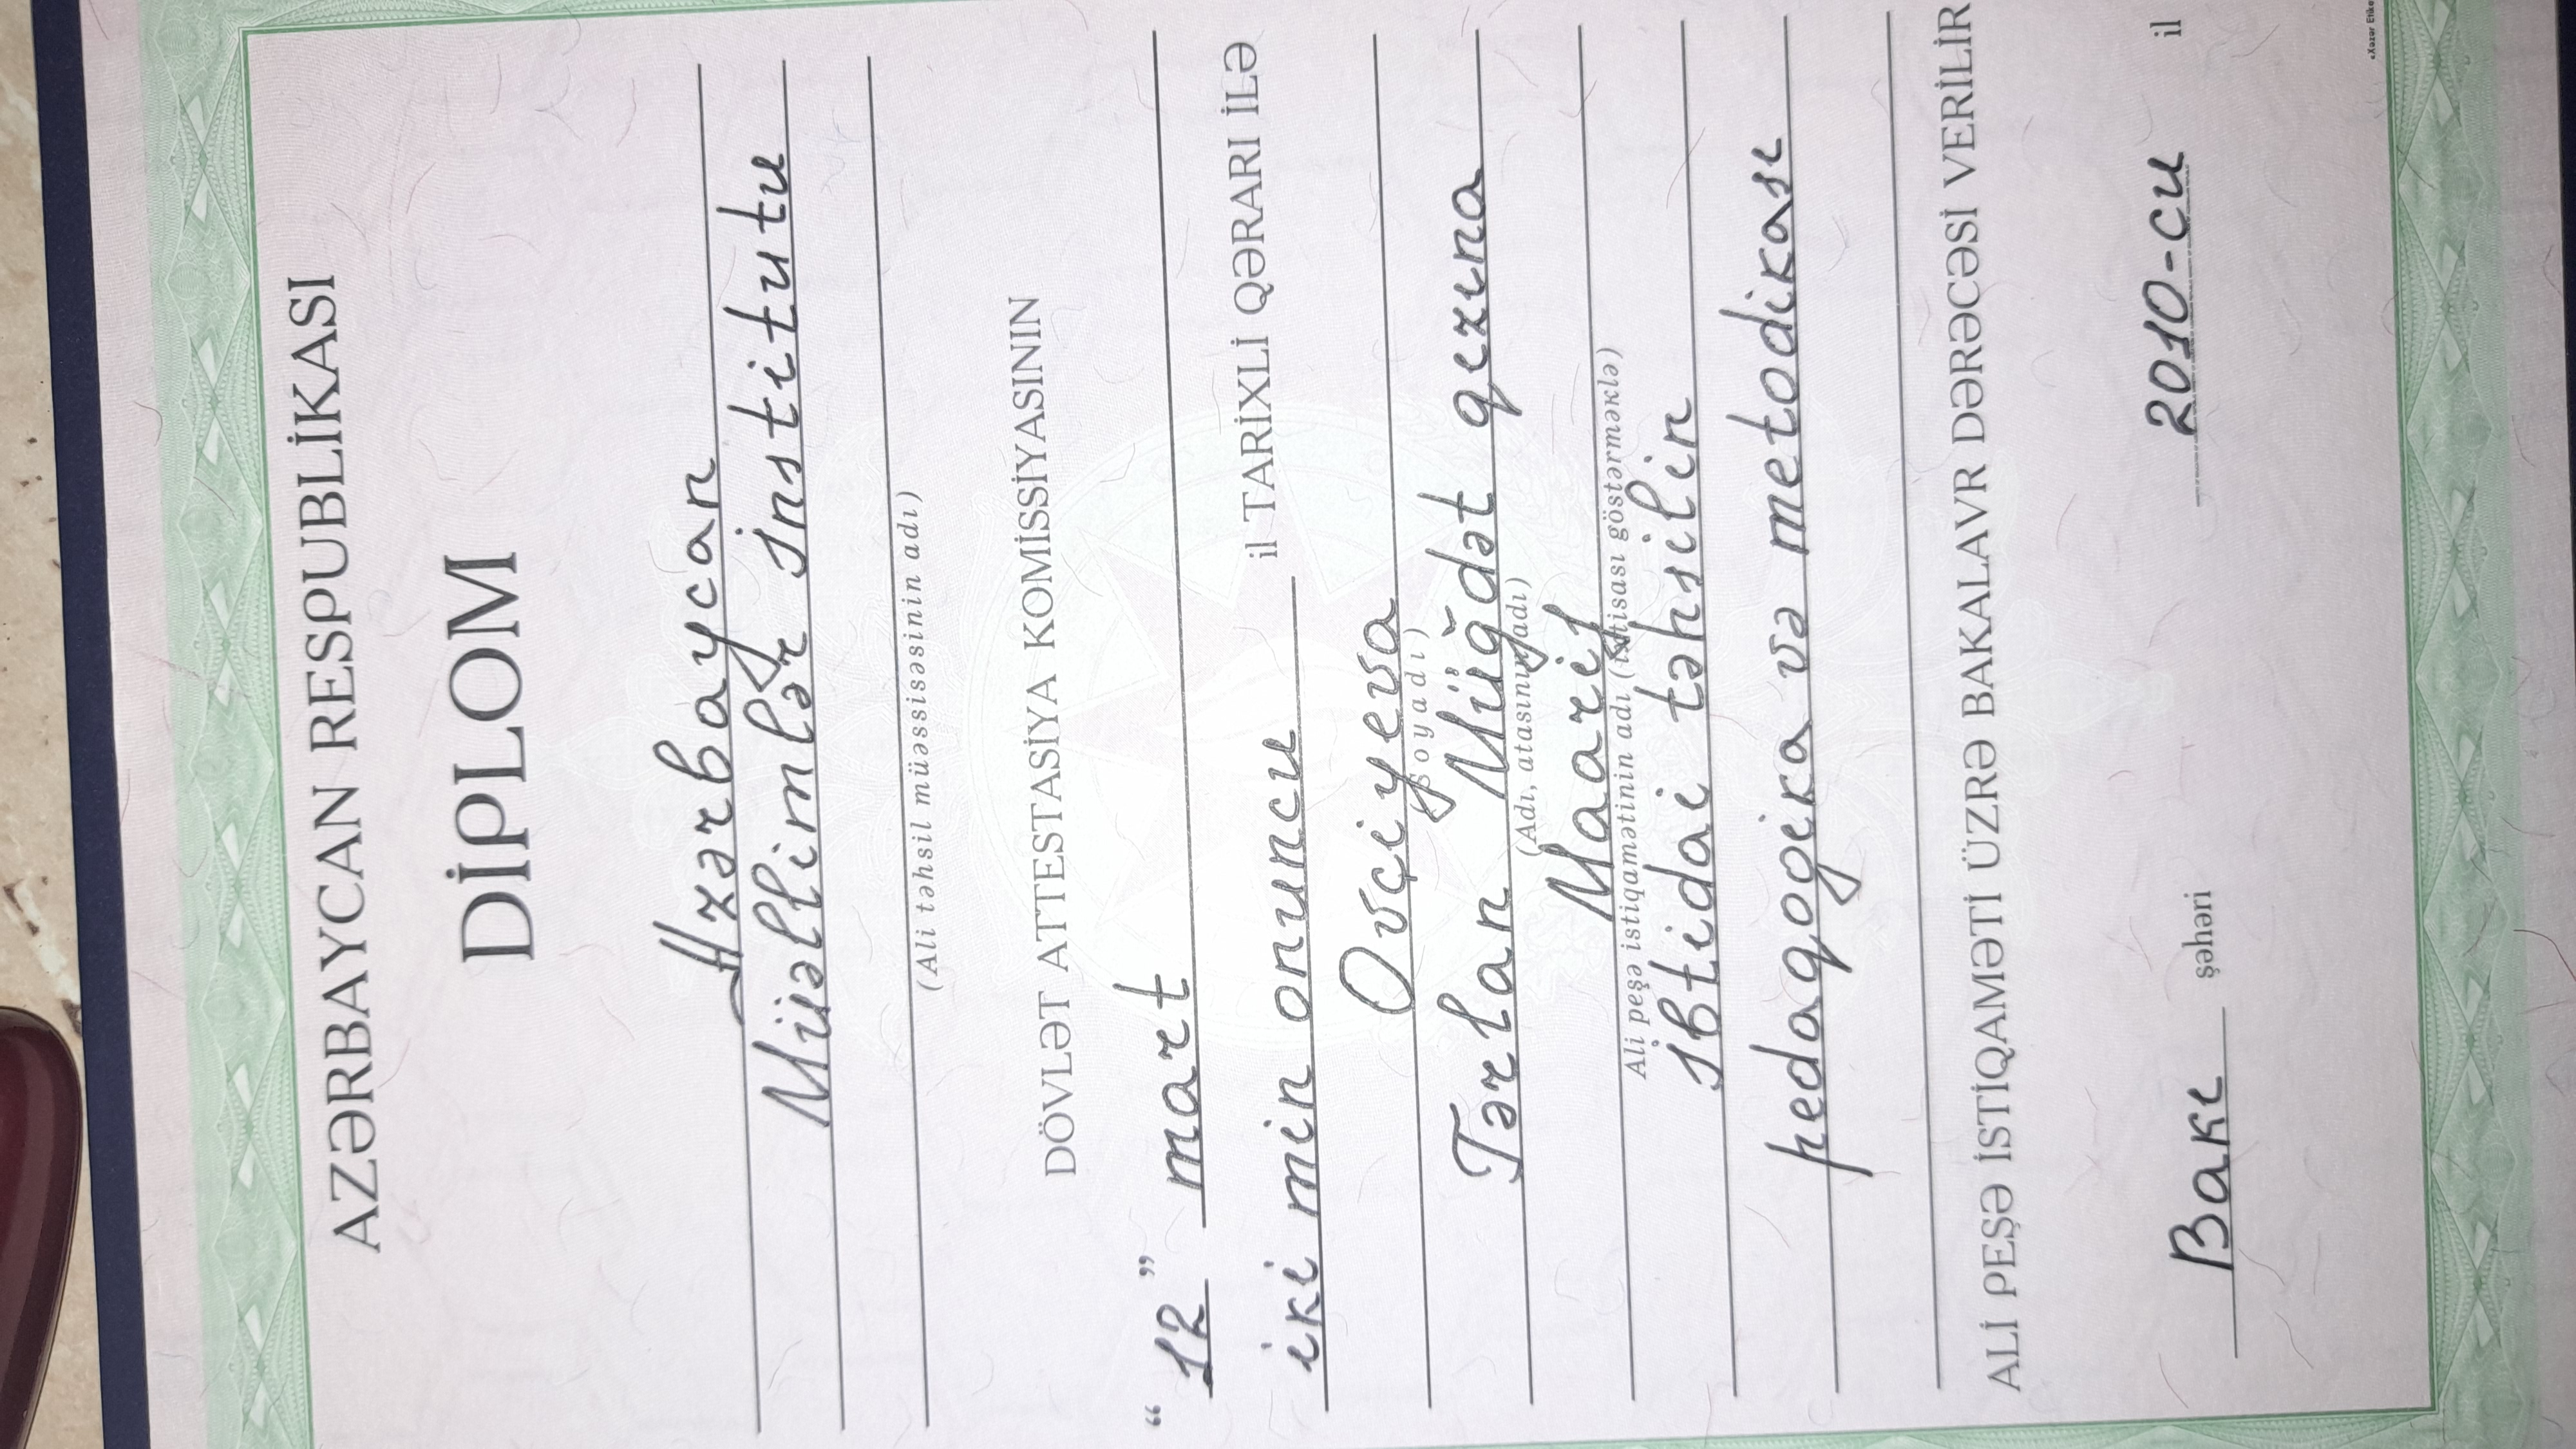 AZƏRBAYCAN RESPUBLİKASI
DİPLOM
Azərbaycan
Müəllimlər İnstitutu
(Ali təhsil müəssisəsinin adı)
DÖVLƏT ATTESTASİYA KOMİSSİYASININ
“ 12 ” mart
iki min onuncu il TARİXLİ QƏRARI İLƏ
Ovçiyeva
(soyadı)
Tərlan Müğdət qızına
(Adı, atasının adı)
Maarif
Ali peşə istiqamətinin adı (ixtisası göstərməklə)
İbtidai təhsilin
pedaqogika və metodikası
ALİ PEŞƏ İSTİQAMƏTİ ÜZRƏ BAKALAVR DƏRƏCƏSİ VERİLİR
Bakı şəhəri 2010-cu il